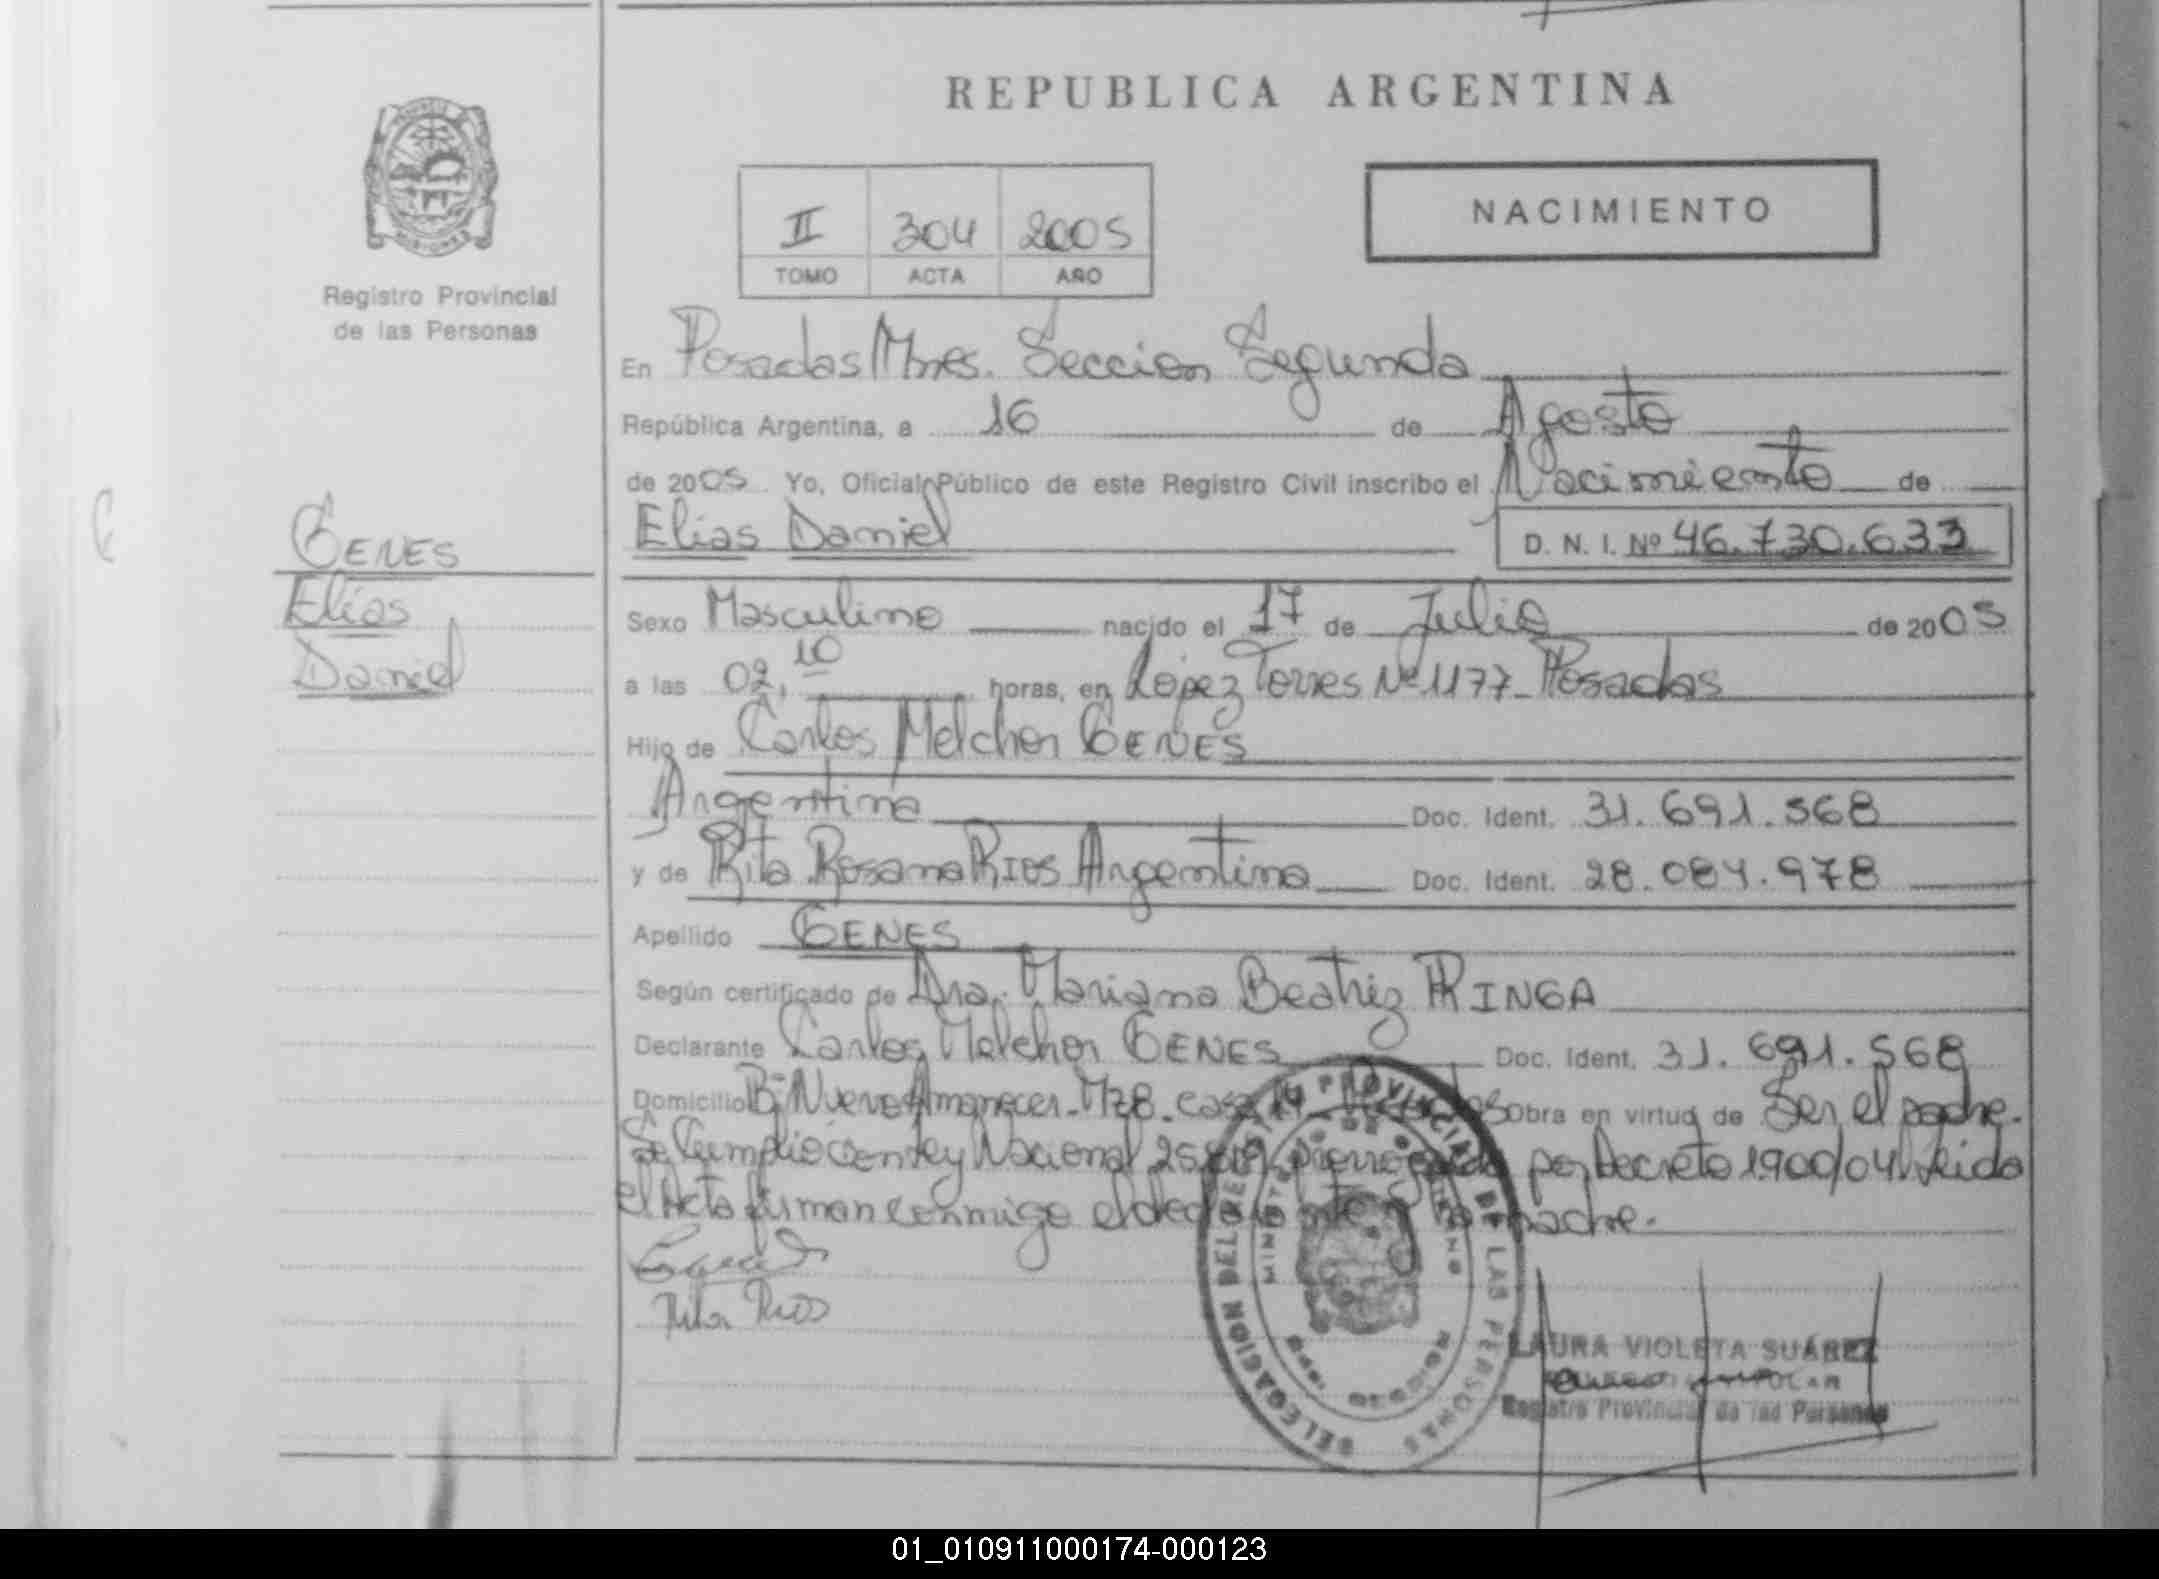 REPUBLICA ARGENTINA
PROVINCIA
MISIONES
Registro Provincial
de las Personas
II 304 2005
TOMO ACTA AÑO
NACIMIENTO
En Posadas Mnes. Sección Segunda
República Argentina, a 16 de Agosto
de 2005 Yo, Oficial Público de este Registro Civil inscribo el Nacimiento de
GENES
Elías
Daniel
Elías Daniel D. N. I. Nº 46.730.633
Sexo Masculino nacido el 17 de Julio de 2005
a las 02,10 horas, en López Torres Nº 1177 - Posadas
Hijo de Carlos Melchor GENES
Argentina Doc. Ident. 31.691.568
y de Rita Rosana RIOS Argentina Doc. Ident. 28.084.978
Apellido GENES
Según certificado de Dra. Mariana Beatriz RINGA
Declarante Carlos Melchor GENES Doc. Ident. 31.691.568
Domicilio Bº Nuevo Amanecer - M78 - casa Obra en virtud de Ser el padre.
Se Cumplió con Ley Nacional por Decreto 1900/04. Leida
el Acta firman conmigo el declarante y la madre.
Rita Rios
DELEGACION DEL REGISTRO PROVINCIAL DE LAS PERSONAS
MINISTERIO DE GOBIERNO
LAURA VIOLETA SUÁREZ
Registro Provincial de las Personas
01_010911000174-000123